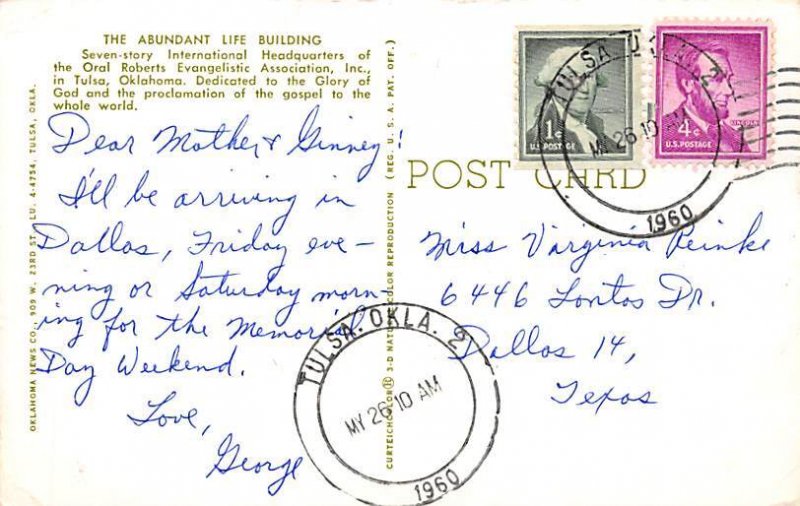 THE ABUNDANT LIFE BUILDING
Seven-story International Headquarters of
the Oral Roberts Evangelistic Association, Inc.,
in Tulsa, Oklahoma. Dedicated to the Glory of
God and the proclamation of the gospel to the
whole world.
Dear Mother & Ginney!
I'll be arriving in
Dallas, Friday eve-
ning or Saturday morn-
ing for the Memorial
Day Weekend.
Love,
George
OKLAHOMA NEWS CO., 909 W. 23RD ST., LU. 4-4754, TULSA, OKLA.
CURTEICHCOLOR® 3-D NATURAL COLOR REPRODUCTION (REG. U. S. A. PAT. OFF.)
POST CARD
1¢
U.S. POSTAGE
LINCOLN
4¢
U.S. POSTAGE
TULSA, OKLA. 2
MY 26 10 AM
1960
Miss Virginia Reinke
6446 Lontos Dr.
Dallas 14,
Texas
TULSA, OKLA. 2
MY 26 10 AM
1960